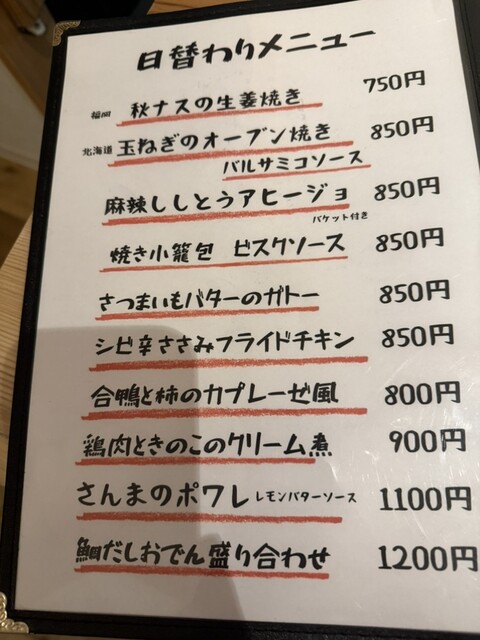 日替わりメニュー
福岡 秋ナスの生姜焼き 750円
北海道 玉ねぎのオーブン焼き 850円
バルサミコソース
麻辣ししとうアヒージョ 850円
バケット付き
焼き小籠包 ビスクソース 850円
さつまいもバターのガトー 850円
シビ辛ささみフライドチキン 850円
合鴨と柿のカプレーゼ風 800円
鶏肉ときのこのクリーム煮 900円
さんまのポワレ レモンバターソース 1100円
鯛だしおでん盛り合わせ 1200円